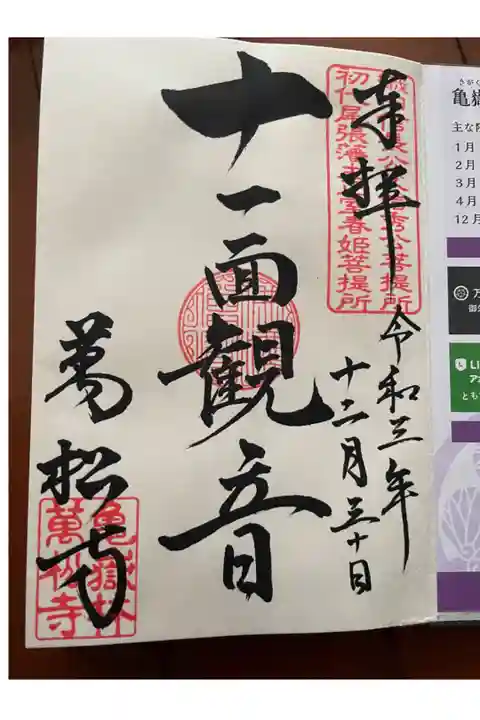 奉拝
初代尾張藩主正室春姫菩提所
令和三年
十二月三十日
十一面観音
萬松寺
亀嶽林
萬松寺
きがく
亀嶽
主な
1月
2月
3月
4月
12月
万
御朱
LI
アカ
ともだ